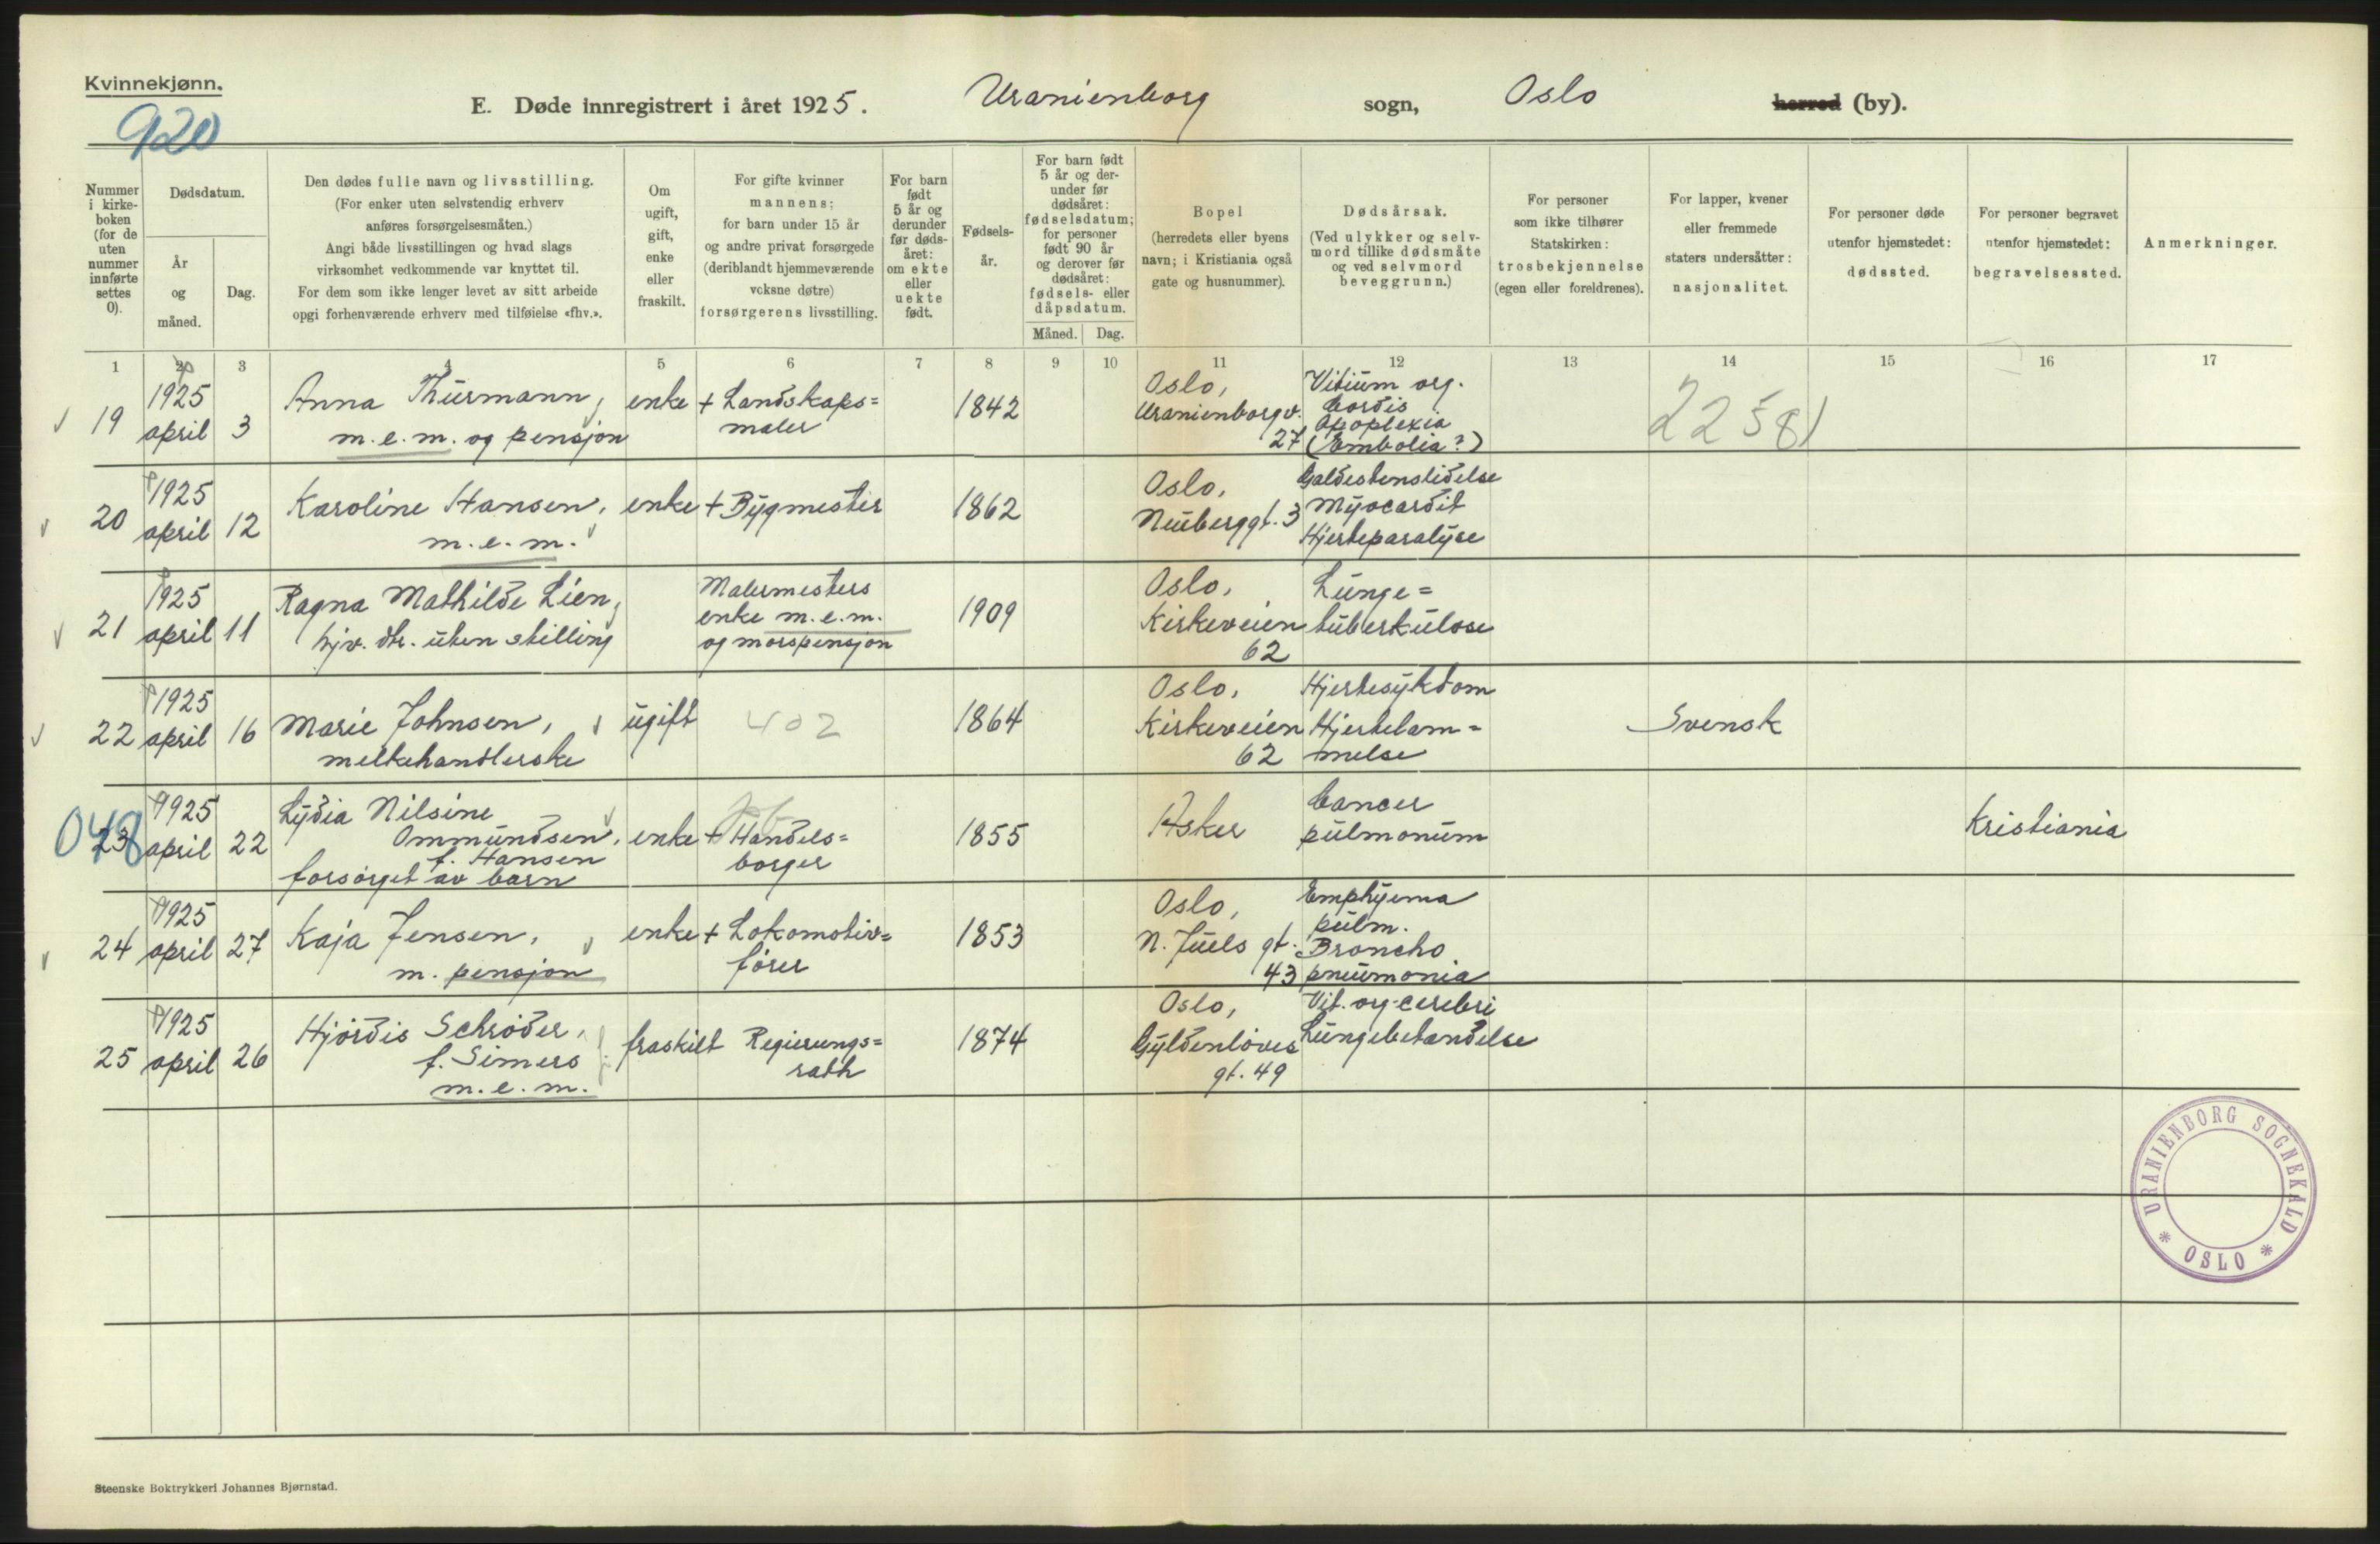 Kvinnekjønn.
920
E. Døde innregistrert i året 1925. Uranienborg sogn, Oslo herred (by).
Nummer
i kirke-
boken
(for de
uten
nummer
innførte
settes
0).
Dødsdatum.
År
og
måned.
Dag.
Den dødes fulle navn og livsstilling.
(For enker uten selvstendig erhverv
anføres forsørgelsesmåten.)
Angi både livsstillingen og hvad slags
virksomhet vedkommende var knyttet til.
For dem som ikke lenger levet av sitt arbeide
opgi forhenværende erhverv med tilføielse «fhv.».
Om
ugift,
gift,
enke
eller
fraskilt.
For gifte kvinner
mannens;
for barn under 15 år
og andre privat forsørgede
(deriblandt hjemmeværende
voksne døtre)
forsørgerens livsstilling.
For barn
født
5 år og
derunder
før døds-
året:
om ekte
eller
uekte
født.
Fødsels-
år.
For barn født
5 år og der-
under før
dødsåret:
fødselsdatum;
for personer
født 90 år
og derover før
dødsåret:
fødsels- eller
dåpsdatum.
Måned. Dag.
Bopel
(herredets eller byens
navn; i Kristiania også
gate og husnummer).
Dødsårsak.
(Ved ulykker og selv-
mord tillike dødsmåte
og ved selvmord
beveggrunn.)
For personer
som ikke tilhører
Statskirken:
trosbekjennelse
(egen eller foreldrenes).
For lapper, kvener
eller fremmede
staters undersåtter:
nasjonalitet.
For personer døde
utenfor hjemstedet:
dødssted.
For personer begravet
utenfor hjemstedet:
begravelsessted.
Anmerkninger.
1 2 3 4 5 6 7 8 9 10 11 12 13 14 15 16 17
19
1925
april
3
Anna Thurmann,
m.e.m. og pensjon
enke
+ Landskaps=
maler
1842
Oslo,
Uranienborgv.
27
Vitium org.
Cordis
Apoplexia
(Embolia?)
22581
20
1925
april
12
Karoline Hansen,
m.e.m.
enke
+ Bygmester
1862
Oslo,
Neuberggt. 3
Galdestenslidelse
Myocardit
Hjerteparalyse
21
1925
april
11
Ragna Mathilde Lien,
hjv. dtr. uten stilling
Malermesters
enke m.e.m.
og morspensjon
1909
Oslo,
Kirkeveien
62
Lunge=
tuberkulose
22
1925
april
16
Marie Johnsen,
melkehandlerske
ugift
402
1864
Oslo,
Kirkeveien
62
Hjertesykdom
Hjertelam=
melse
Svensk
048
23
1925
april
22
Lydia Nilsine
Ommundsen,
f. Hansen
forsørget av barn
enke
+ Handels=
borger
1855
Asker
Cancer
pulmonum
Kristiania
24
1925
april
27
Kaja Jensen,
m. pensjon
enke
+ Lokomotiv=
fører
1853
Oslo,
N. Juels gt.
43
Emphyema
pulm.
Broncho
pneumonia
25
1925
april
26
Hjørdis Schrøder,
f. Simers
m.e.m.
fraskilt
Regierungs=
rath
1874
Oslo,
Gyldenløves
gt. 49
Vit. org. cerebri
Lungebetændelse
URANIENBORG SOGNEKALD
* OSLO *
Steenske Boktrykkeri Johannes Bjørnstad.